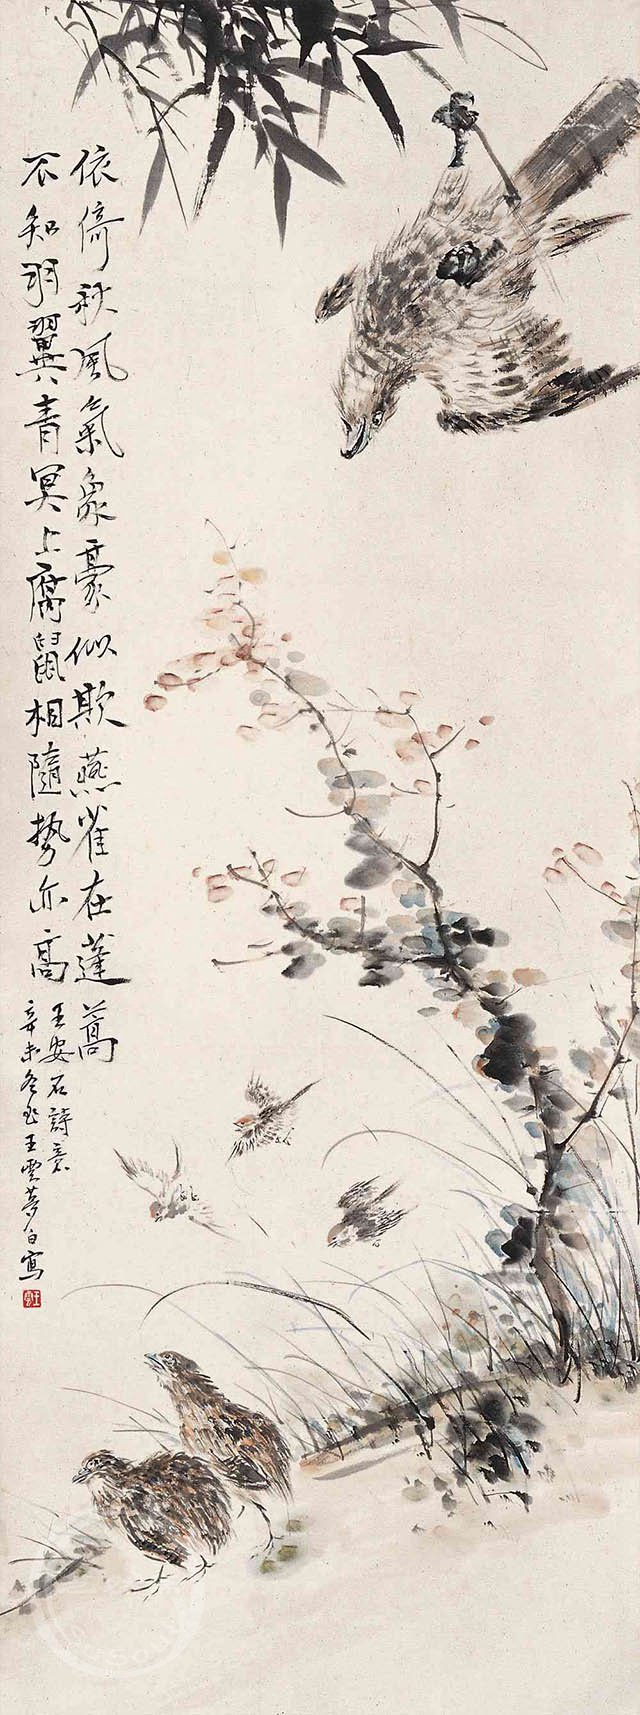 依倚秋風氣象豪似欺燕雀在蓬蒿
不知羽翼青冥上腐鼠相隨勢亦高
王安石詩意
辛未冬 王雲夢白寫